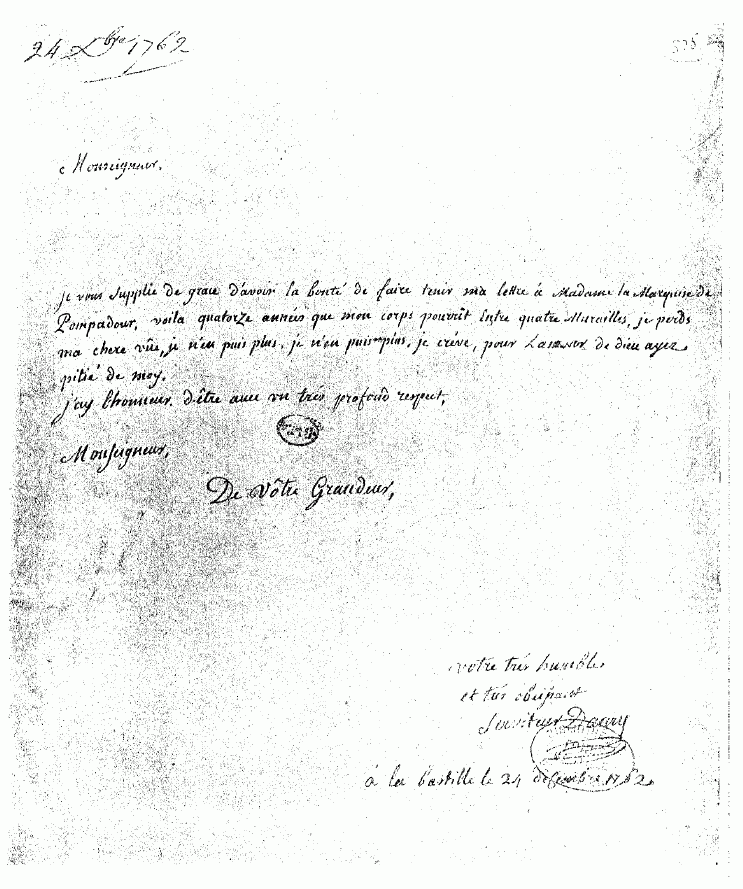 24 Xbre 1762
Monseigneur,
je vous supplie de grace d'avoir la bonté de faire tenir ma lettre à Madame la Marquise de
Pompadour, voila quatorze années que mon corps pourrit Entre quatre Murailles, je perds
ma chere vûe, je n'en puis plus, je n'en puis plus, je créve, pour Lamour de dieu ayez
pitié de moy.
j'ay lhonneur d'être avec un trés profond respect,
Monseigneur,
De vôtre Grandeur,
votre trés humble
et trés obeissant
serviteur Danry
á la bastille le 24 decembre 1762.